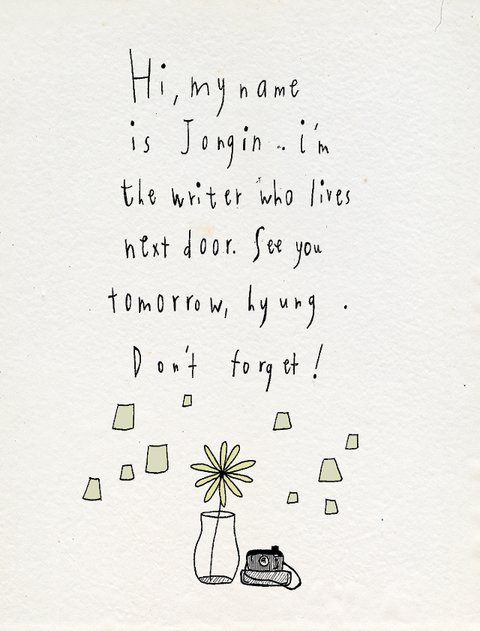 Hi, my name
is Jongin.. i'm
the writer who lives
next door. See you
tomorrow, hyung.
Don't forget!